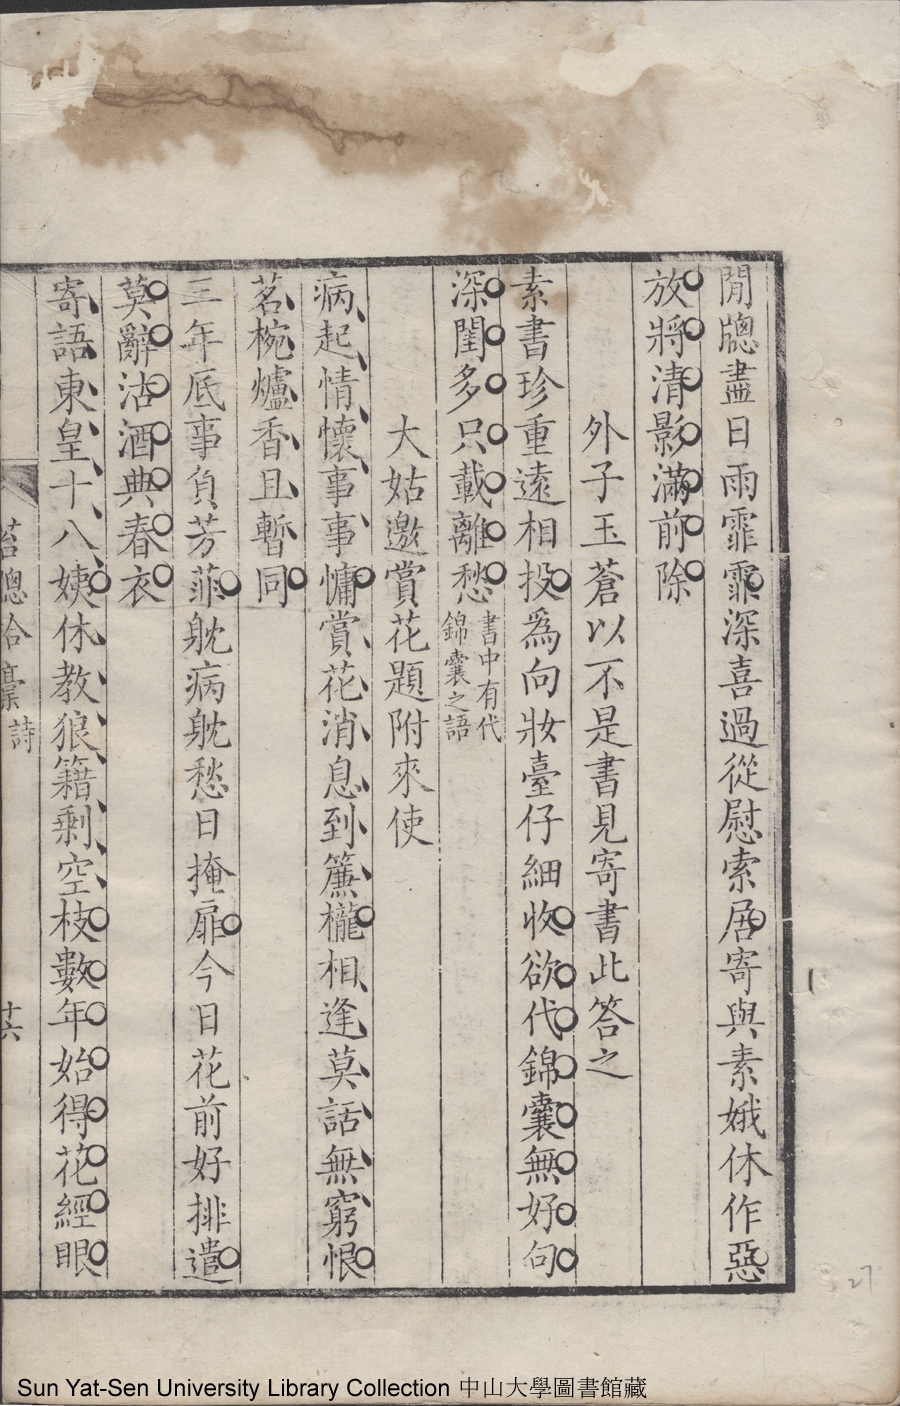 閒牕盡日雨霏霏深喜過從慰索居寄與素娥休作惡
放將清影滿前除
外子玉蒼以不是書見寄書此答之
素書珍重遠相投爲向妝臺仔細收欲代錦囊無好句
深閨多只載離愁書中有代
錦囊之語
大姑邀賞花題附來使
病起情懷事事慵賞花消息到簾櫳相逢莫話無窮恨
茗椀爐香且暫同
三年底事負芳菲躭病躭愁日掩扉今日花前好排遣
莫辭沽酒典春衣
寄語東皇十八姨休教狼籍剩空枝數年始得花經眼
詩
十六
27
Sun Yat-Sen University Library Collection 中山大學圖書館藏